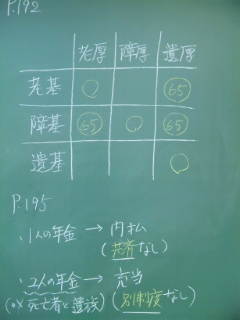 P.192
老厚 障厚 遺厚
老基 ○ 65
障基 65 ○ 65
遺基 ○
P.195
・1人の年金 → 内払
(共済なし)
・2人の年金 → 充当
(ex 死亡者と遺族) (別制度なし)